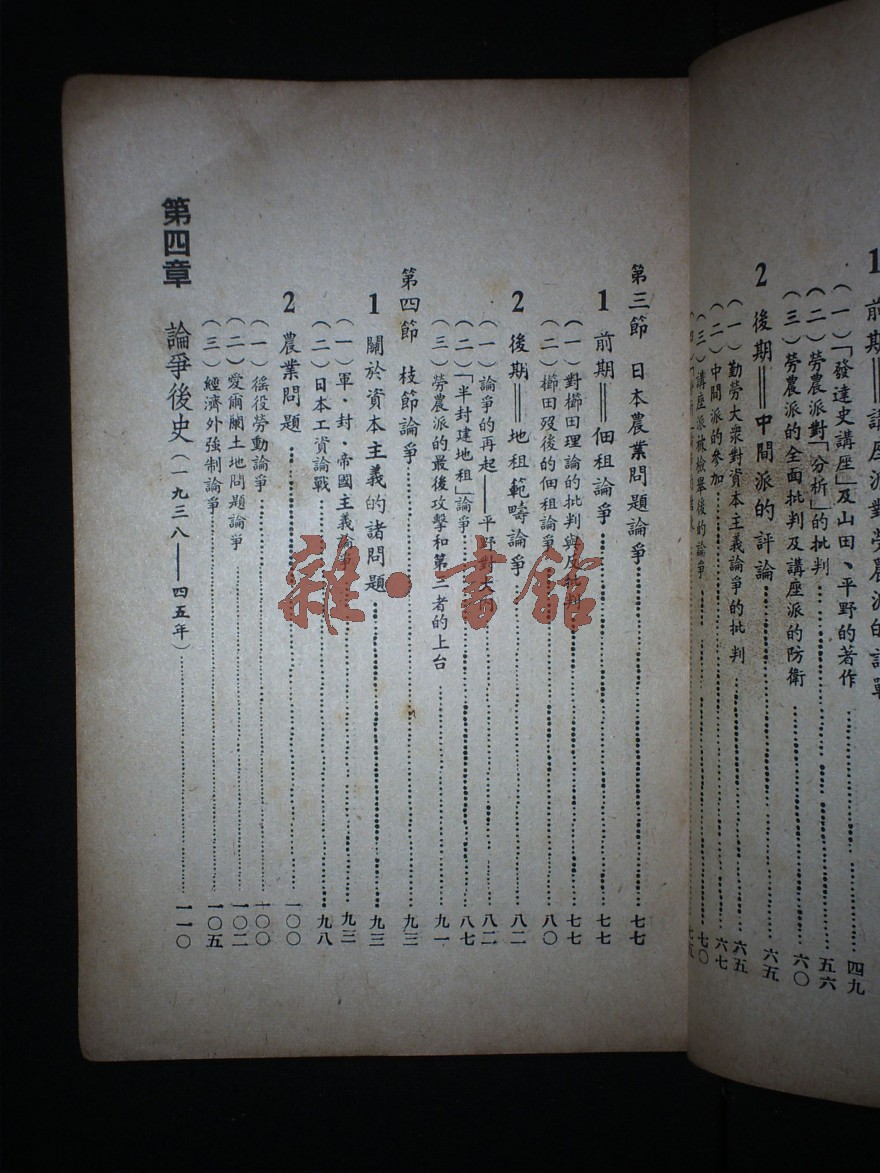 1 前期＝講座派對勞農派的論戰
(一)「發達史講座」及山田、平野的著作……四九
(二)勞農派對「分析」的批判……五六
(三)勞農派的全面批判及講座派的防衛……六〇
2 後期＝中間派的評論……六五
(一)勤勞大衆對資本主義論爭的批判……六五
(二)中間派的參加……六七
(三)講座派被檢舉後的論爭……七〇
七五
第三節 日本農業問題論爭……七七
1 前期＝佃租論爭……七七
(一)對櫛田理論的批判與反批判……七七
(二)櫛田歿後的佃租論爭……八〇
2 後期＝地租範疇論爭……八二
(一)論爭的再起——平野對……八二
(二)「半封建地租」論爭……八七
(三)勞農派的最後攻擊和第三者的上台……九一
第四節 枝節論爭……九三
1 關於資本主義的諸問題……九三
(一)軍·封·帝國主義論爭……九三
(二)日本工資論戰……九八
2 農業問題……一〇〇
(一)徭役勞動論爭……一〇〇
(二)愛爾蘭土地問題論爭……一〇二
(三)經濟外強制論爭……一〇五
第四章 論爭後史(一九三八——四五年)……一一〇
雜·書館